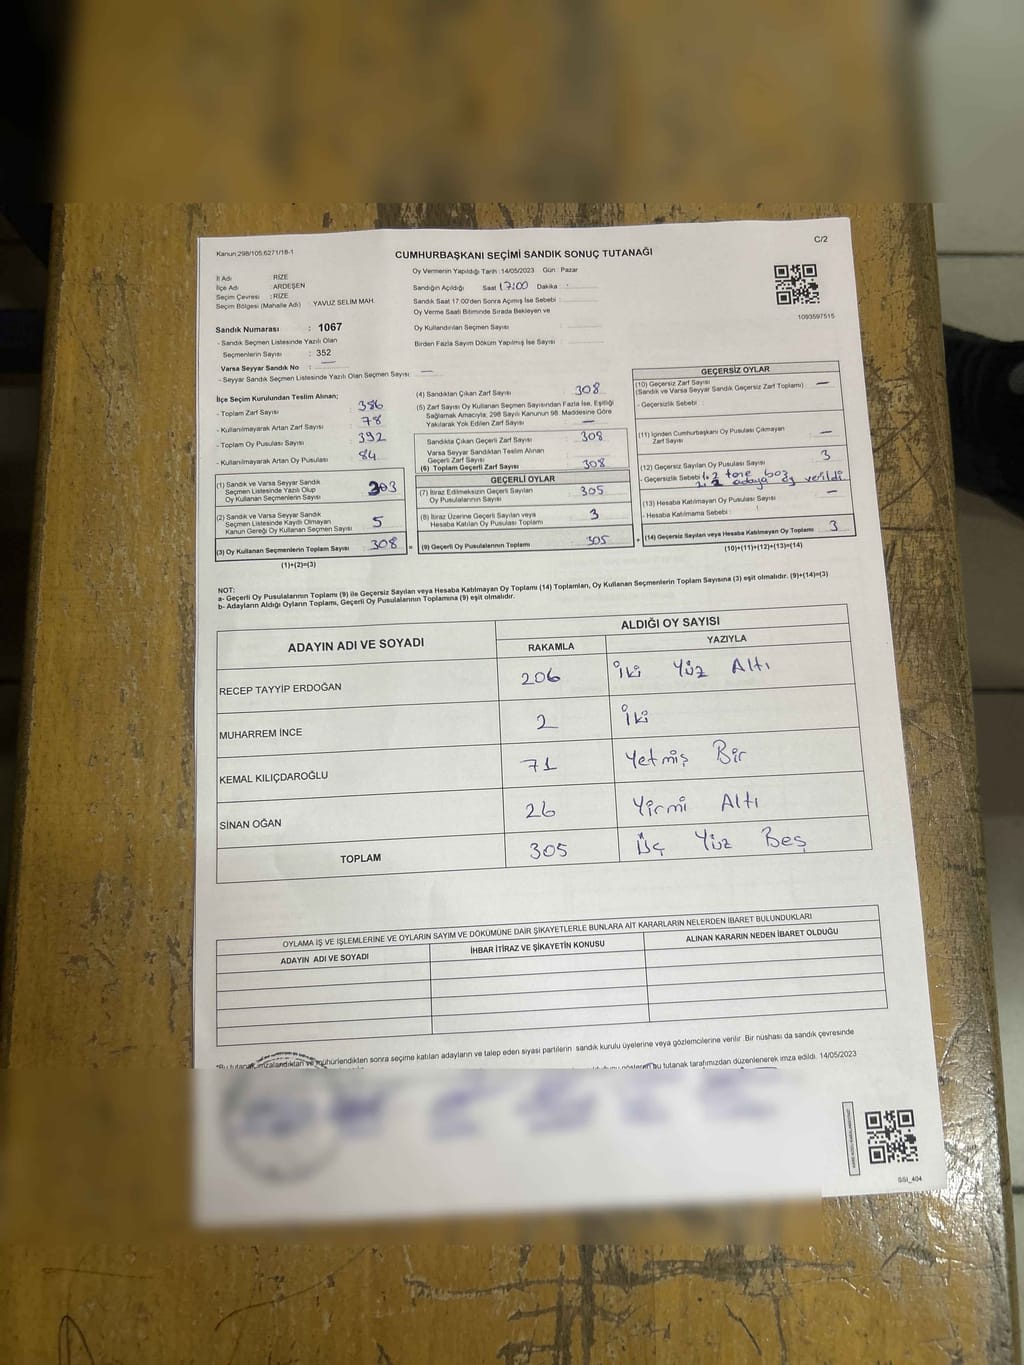 C/2
Kanun:298/105,6271/18-1
CUMHURBAŞKANI SEÇİMİ SANDIK SONUÇ TUTANAĞI
İl Adı : RİZE
İlçe Adı : ARDEŞEN
Seçim Çevresi : RİZE
Seçim Bölgesi (Mahalle Adı) YAVUZ SELİM MAH.
Oy Vermenin Yapıldığı Tarih :14/05/2023 Gün : Pazar
Sandığın Açıldığı Saat 17:00 Dakika :
Sandık Saat 17:00'den Sonra Açımış İse Sebebi :
Oy Verme Saati Bitiminde Sırada Bekleyen ve
Oy Kullandırılan Seçmen Sayısı :
Birden Fazla Sayım Döküm Yapılmış İse Sayısı :
1093597515
Sandık Numarası : 1067
- Sandık Seçmen Listesinde Yazılı Olan
Seçmenlerin Sayısı : 352
Varsa Seyyar Sandık No : —
- Seyyar Sandık Seçmen Listesinde Yazılı Olan Seçmen Sayısı : —
İlçe Seçim Kurulundan Teslim Alınan;
- Toplam Zarf Sayısı : 386
- Kullanılmayarak Artan Zarf Sayısı : 78
- Toplam Oy Pusulası Sayısı : 392
- Kullanılmayarak Artan Oy Pusulası : 84
(1) Sandık ve Varsa Seyyar Sandık
Seçmen Listesinde Yazılı Olup
Oy Kullanan Seçmenlerin Sayısı 303
(2) Sandık ve Varsa Seyyar Sandık
Seçmen Listesinde Kayıtlı Olmayan
Kanun Gereği Oy Kullanan Seçmen Sayısı 5
(3) Oy Kullanan Seçmenlerin Toplam Sayısı 308
(1)+(2)=(3)
(4) Sandıktan Çıkan Zarf Sayısı : 308
(5) Zarf Sayısı Oy Kullanan Seçmen Sayısından Fazla İse, Eşitliği
Sağlamak Amacıyla; 298 Sayılı Kanunun 98. Maddesine Göre
Yakılarak Yok Edilen Zarf Sayısı : —
Sandıkta Çıkan Geçerli Zarf Sayısı : 308
Varsa Seyyar Sandıktan Teslim Alınan
Geçerli Zarf Sayısı
(6) Toplam Geçerli Zarf Sayısı : 308
GEÇERLİ OYLAR
(7) İtiraz Edilmeksizin Geçerli Sayılan
Oy Pusulalarının Sayısı : 305
(8) İtiraz Üzerine Geçerli Sayılan veya
Hesaba Katılan Oy Pusulası Toplamı : 3
(9) Geçerli Oy Pusulalarının Toplamı : 305
GEÇERSİZ OYLAR
(10) Geçersiz Zarf Sayısı
(Sandık ve Varsa Seyyar Sandık Geçersiz Zarf Toplamı) : —
- Geçersizlik Sebebi :
(11) İçinden Cumhurbaşkanı Oy Pusulası Çıkmayan
Zarf Sayısı : —
(12) Geçersiz Sayılan Oy Pusulası Sayısı : 3
- Geçersizlik Sebebi 1. 2 tane boş
2. 2 adaya oy verildi
(13) Hesaba Katılmayan Oy Pusulası Sayısı : —
- Hesaba Katılmama Sebebi :
(14) Geçersiz Sayılan veya Hesaba Katılmayan Oy Toplamı : 3
(10)+(11)+(12)+(13)=(14)
NOT:
a- Geçerli Oy Pusulalarının Toplamı (9) ile Geçersiz Sayılan veya Hesaba Katılmayan Oy Toplamı (14) Toplamları, Oy Kullanan Seçmenlerin Toplam Sayısına (3) eşit olmalıdır. (9)+(14)=(3)
b- Adayların Aldığı Oyların Toplamı, Geçerli Oy Pusulalarının Toplamına (9) eşit olmalıdır.
ADAYIN ADI VE SOYADI ALDIĞI OY SAYISI
RAKAMLA YAZIYLA
RECEP TAYYİP ERDOĞAN 206 İki Yüz Altı
MUHARREM İNCE 2 İki
KEMAL KILIÇDAROĞLU 71 Yetmiş Bir
SİNAN OĞAN 26 Yirmi Altı
TOPLAM 305 Üç Yüz Beş
OYLAMA İŞ VE İŞLEMLERİNE VE OYLARIN SAYIM VE DÖKÜMÜNE DAİR ŞİKAYETLERLE BUNLARA AİT KARARLARIN NELERDEN İBARET BULUNDUKLARI
ADAYIN ADI VE SOYADI İHBAR İTİRAZ VE ŞİKAYETİN KONUSU ALINAN KARARIN NEDEN İBARET OLDUĞU
*Bu tutanak imzalandıktan ve mühürlendikten sonra seçime katılan adayların ve talep eden siyasi partilerin sandık kurulu üyelerine veya gözlemcilerine verilir .Bir nüshası da sandık çevresinde
bu tutanak tarafımızdan düzenlenerek imza edildi. 14/05/2023
SSI_404